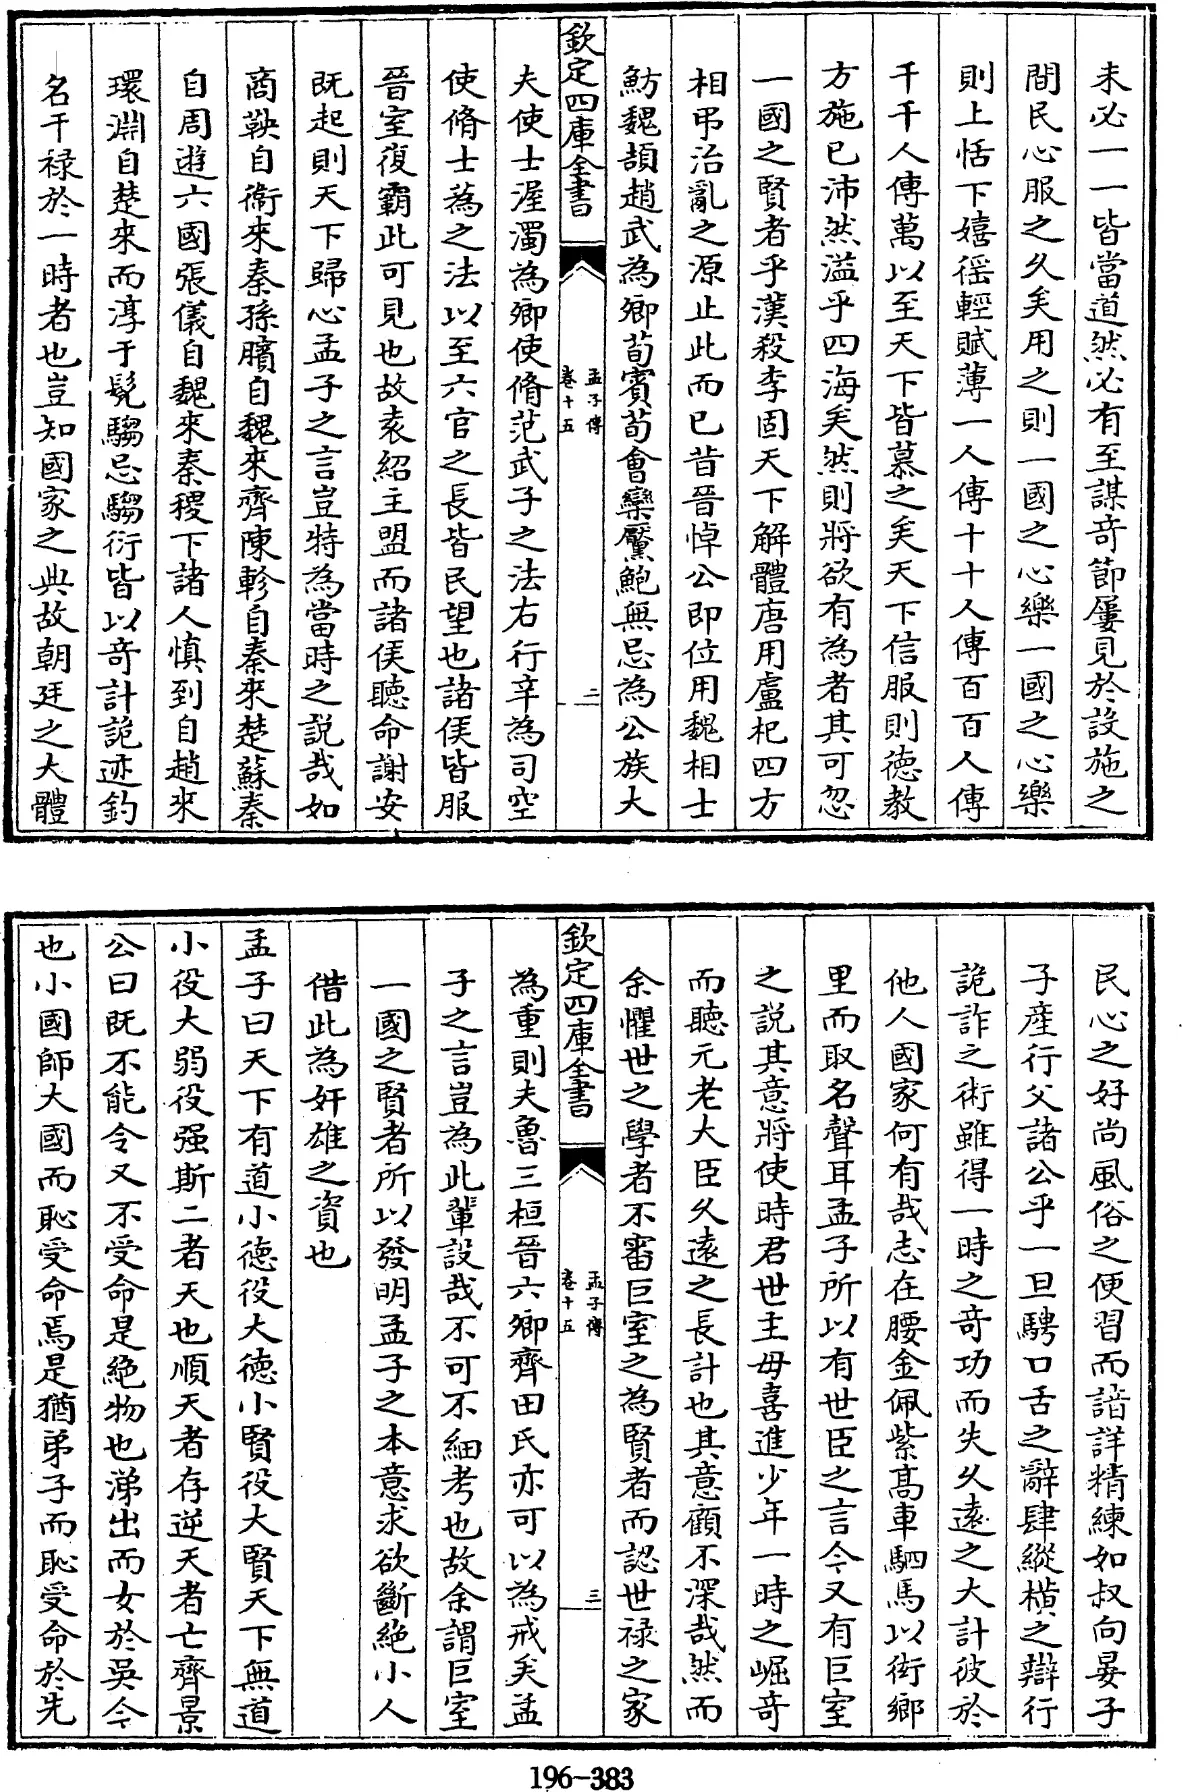 未必一一皆當道然必有至謀奇節屢見於設施之
間民心服之久矣用之則一國之心樂一國之心樂
則上恬下嬉徭輕賦薄一人傳十十人傳百百人傳
千千人傳萬以至天下皆慕之矣天下信服則徳教
方施已沛然溢乎四海矣然則將欲有為者其可忽
一國之賢者乎漢殺李固天下解體唐用盧杞四方
相弔治亂之源止此而已昔晉悼公即位用魏相士
魴魏頡趙武為卿荀賓荀會欒黶鮑無忌為公族大
欽定四庫全書
孟子傳
卷十五
二
夫使士渥濁為卿使脩范武子之法右行辛為司空
使脩士蒍之法以至六官之長皆民望也諸侯皆服
晉室復霸此可見也故袁紹主盟而諸侯聽命謝安
既起則天下歸心孟子之言豈特為當時之説哉如
商鞅自衛來秦孫臏自魏來齊陳軫自秦來楚蘇秦
自周遊六國張儀自魏來秦稷下諸人慎到自趙來
環淵自楚來而淳于髠騶忌騶衍皆以奇計詭迹釣
名干禄於一時者也豈知國家之典故朝廷之大體
民心之好尚風俗之便習而諳詳精練如叔向晏子
子產行父諸公乎一旦騁口舌之辭肆縱橫之辯行
詭詐之術雖得一時之奇功而失久遠之大計彼於
他人國家何有哉志在腰金佩紫髙車駟馬以衒鄉
里而取名聲耳孟子所以有世臣之言今又有巨室
之説其意將使時君世主毋喜進少年一時之崛奇
而聽元老大臣久遠之長計也其意顧不深哉然而
余懼世之學者不審巨室之為賢者而認世禄之家
欽定四庫全書
孟子傳
卷十五
三
為重則夫魯三桓晉六卿齊田氏亦可以為戒矣孟
子之言豈為此輩設哉不可不細考也故余謂巨室
一國之賢者所以發明孟子之本意求欲斷絶小人
借此為奸雄之資也
孟子曰天下有道小徳役大徳小賢役大賢天下無道
小役大弱役强斯二者天也順天者存逆天者亡齊景
公曰既不能令又不受命是絶物也涕出而女於吳今
也小國師大國而恥受命焉是猶弟子而恥受命於先
196-383